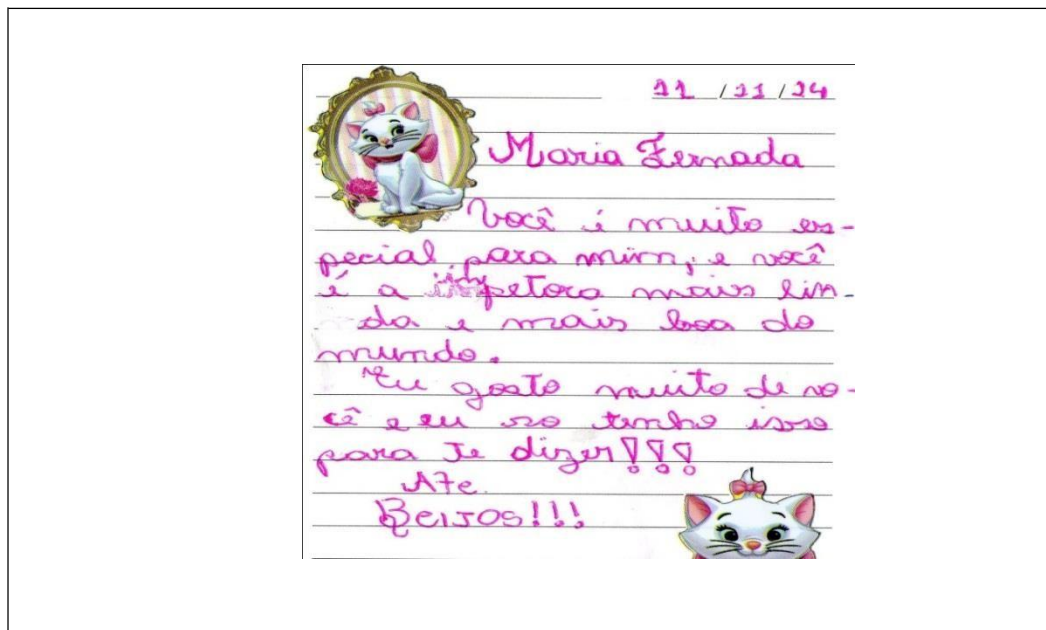 11 /11/14
Maria Fernada
Você é muito es-
pecial para mim, e você
é a inspetora mais lin-
da e mais boa do
mundo.
Eu gosto muito de vo-
cê e eu so tenho isso
para te dizer!!!
Ate
Beijos!!!